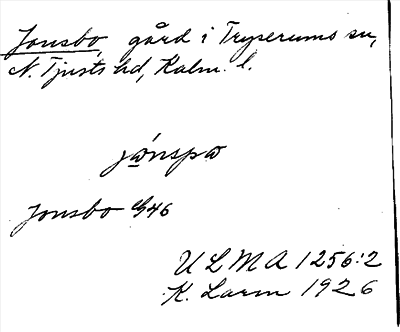 Jonsbo gård i Tryserums sn,
N. Tjusts hd, Kalm. l.
jònspo
Jonsbo G46
ULMA 1256:2
K. Larm 1926